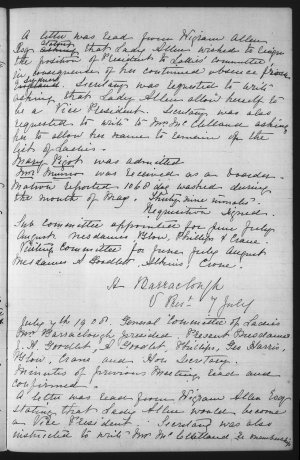 A letter was read from Wigram Allen
Esq stating that Lady Allen wished to resign
the position of President to Ladies' Committee
in consequence of her continued absence from
Secretary was requested to write
asking that Lady Allen allow herself to
be a Vice President. Secretary was also
requested to write to Mrs McClelland asking
her to allow her name to remain up the
list of Ladies.
Mary Pigot was admitted
Mrs Munro was received as a boarder.
Matron reported 1068 day washed during
the month of May. Thirty nine inmates.
Requisition signed.
Sub Committee appointed for June July
August Mesdames Blow, Phillips & Crane.
Visiting Committee for June July August
Mesdames A Goodlet Elkins, Crone.
A Barraclough
Pres. 7 July
July 7th 1908. General Committee of Ladies
Mrs Barraclough presided. Present Mesdames
J. H. Goodlet, A Goodlet Phillips, Geo Harris
Blow, Crane and Hon Secretary.
Minutes of previous Meeting read and
confirmed.
A letter was read from Wigram Allen Esq
stating that Lady Allen would become
a Vice President. Secretary was also
instructed to write Mrs McClelland re membership